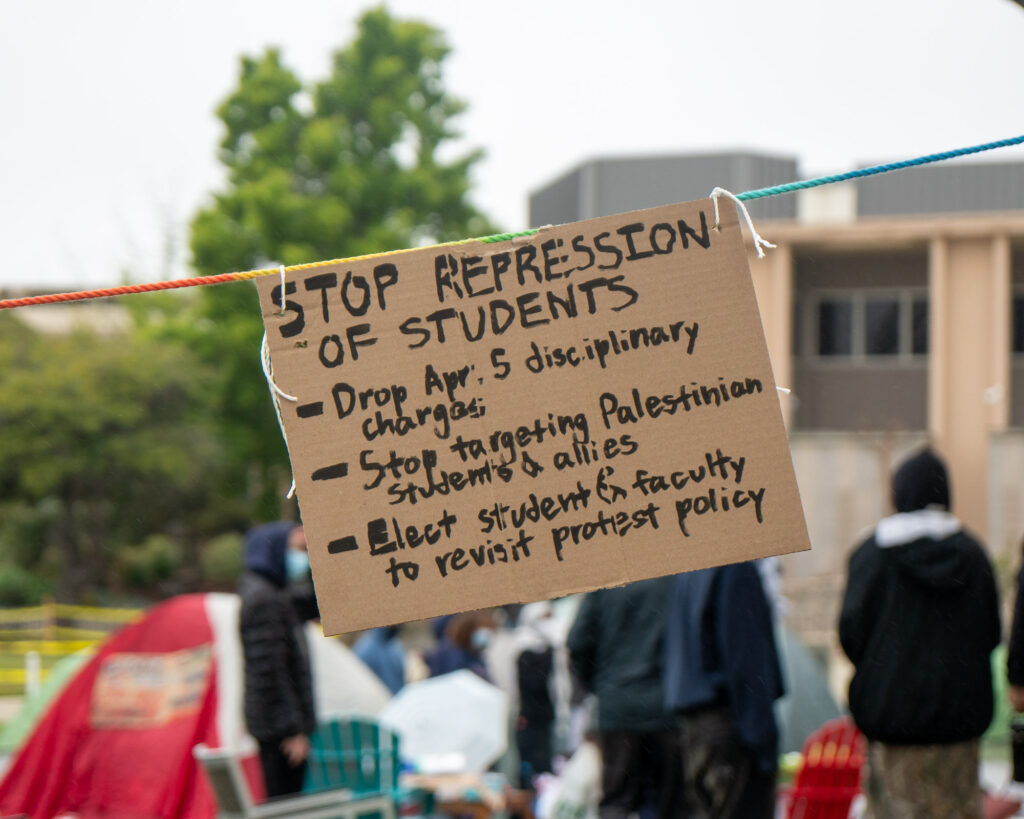 STOP REPRESSION
OF STUDENTS
- Drop Apr. 5 disciplinary
charges
- Stop targeting Palestinian
students & allies
- Elect student & faculty
to revisit protest policy